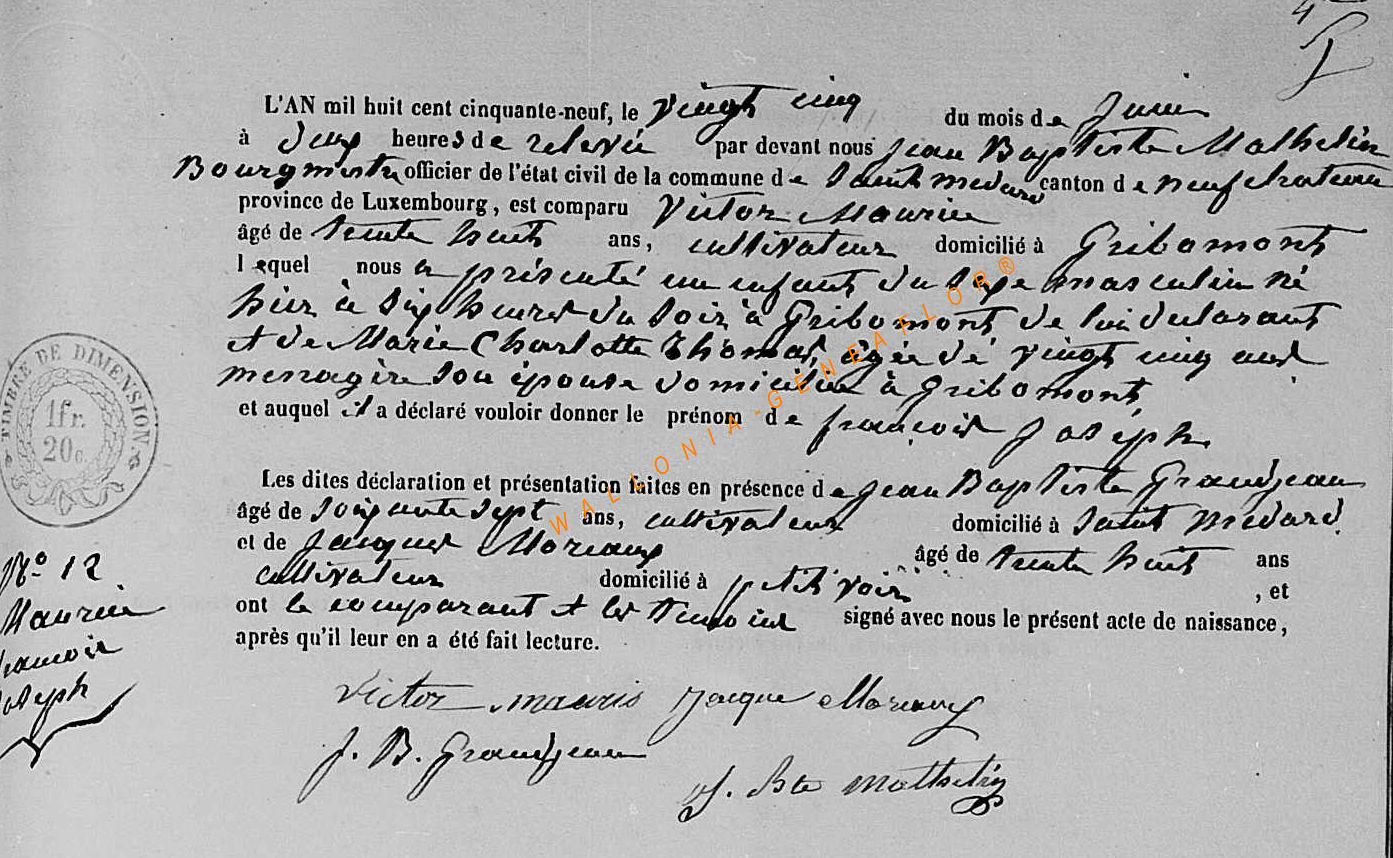 4
L'AN mil huit cent cinquante-neuf, le vingt cinq du mois de Juin
à deux heures de relevée par devant nous Jean Baptiste Mathelin
Bourgmestre officier de l'état civil de la commune de Saint medard canton de neufchateau
province de Luxembourg, est comparu Victor Maurice
âgé de trente huit ans, cultivateur domicilié à Gribomont
lequel nous a présenté un enfant du sexe masculin né
hier à six heures du soir à Gribomont de lui declarant
et de Marie Charlotte Thomas, agée de vingt cinq ans
menagère son épouse domiciliée à Gribomont
et auquel il a déclaré vouloir donner le prénom de françois Joseph
Les dites déclaration et présentation faites en présence de Jean Baptiste Grandjean
âgé de soixante sept ans, cultivateur domicilié à Saint medard
et de Jacques Moriaux âgé de trente huit ans
cultivateur domicilié à petit voir, et
ont le comparant et les temoins signé avec nous le présent acte de naissance,
après qu'il leur en a été fait lecture.
TIMBRE DE DIMENSION
1 fr.
20 c.
No 12
Maurice
françois
Joseph
Victor mauris Jacque Moriaux
J. B. Grandjean
J. Bte mathelin
WALLONIA-GENEAFLOR®